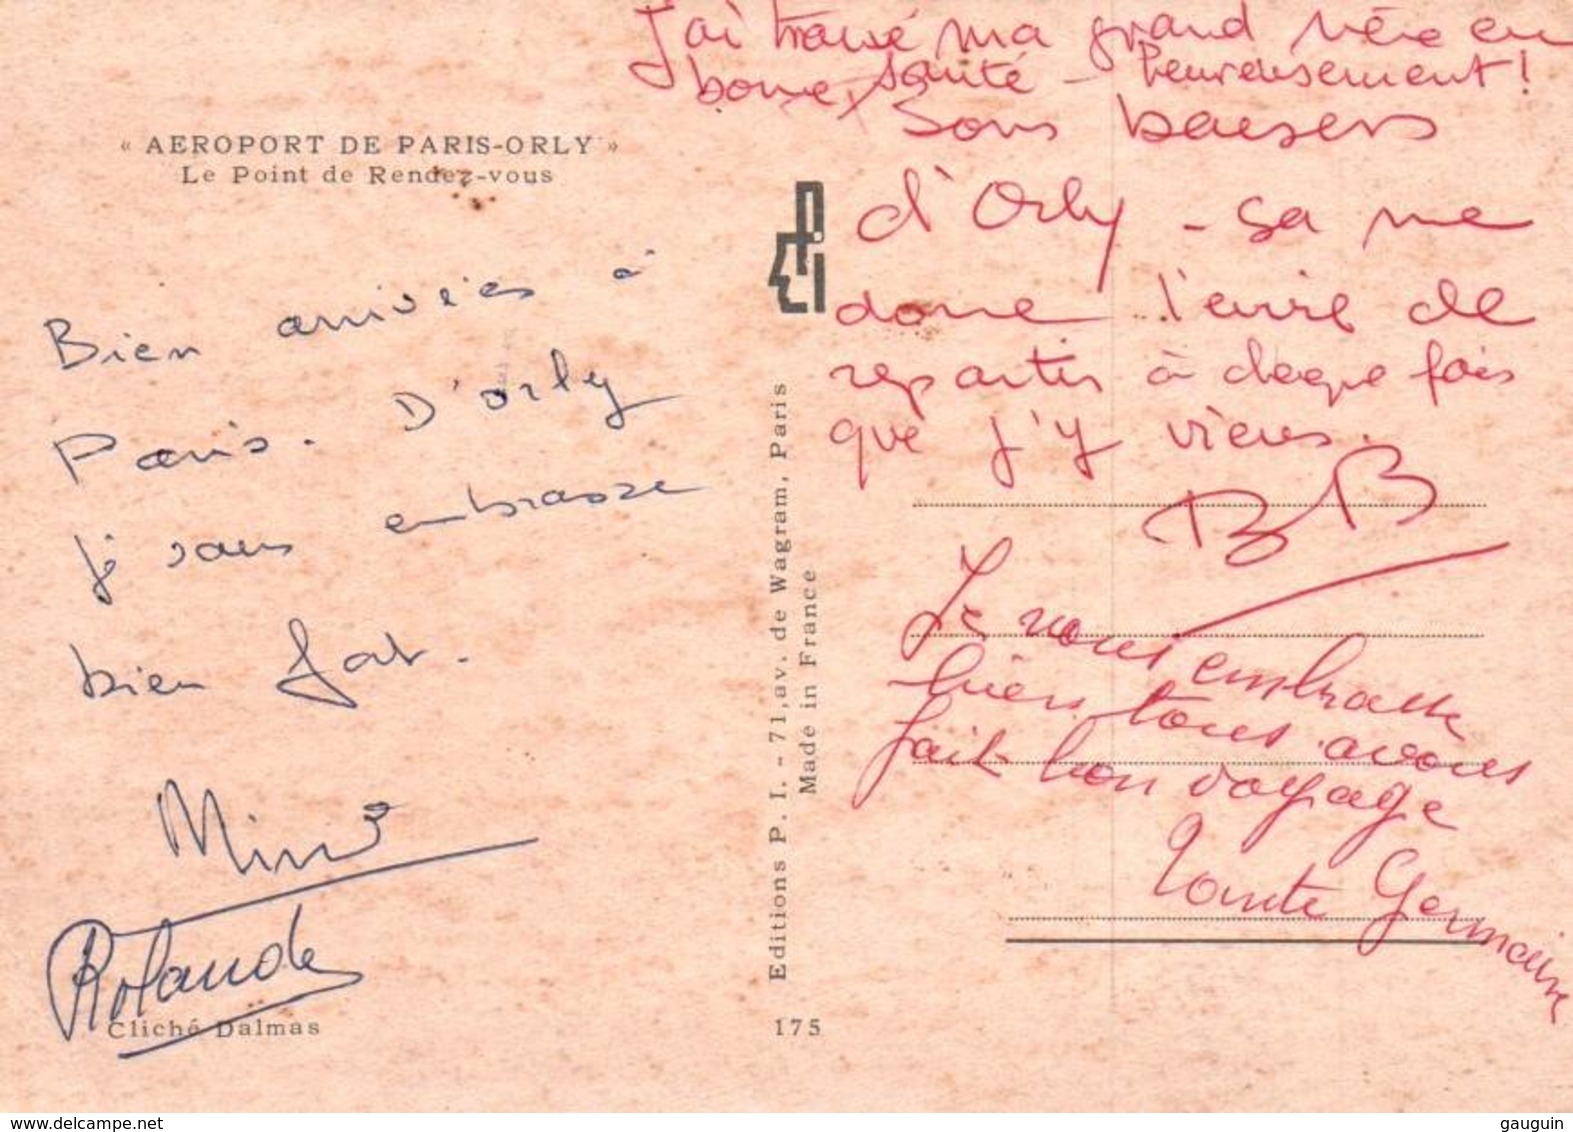 J'ai trouvé ma grand mère en
bonne santé - heureusement!
« AEROPORT DE PARIS-ORLY »
Le Point de Rendez-vous
Bien arrivées à
Paris. D'orly
je vous embrasse
bien fort.
Mimi
Rolande
Cliché Dalmas
Editions P. I. - 71, av. de Wagram, Paris
Made in France
175
Bons baisers
d'Orly - sa me
donne l'envie de
repartir à chaque fois
que j'y viens.
BB
Je vous embrasse
bien tous avons
fait bon voyage
Tante Germaine
www.delcampe.net
gauguin